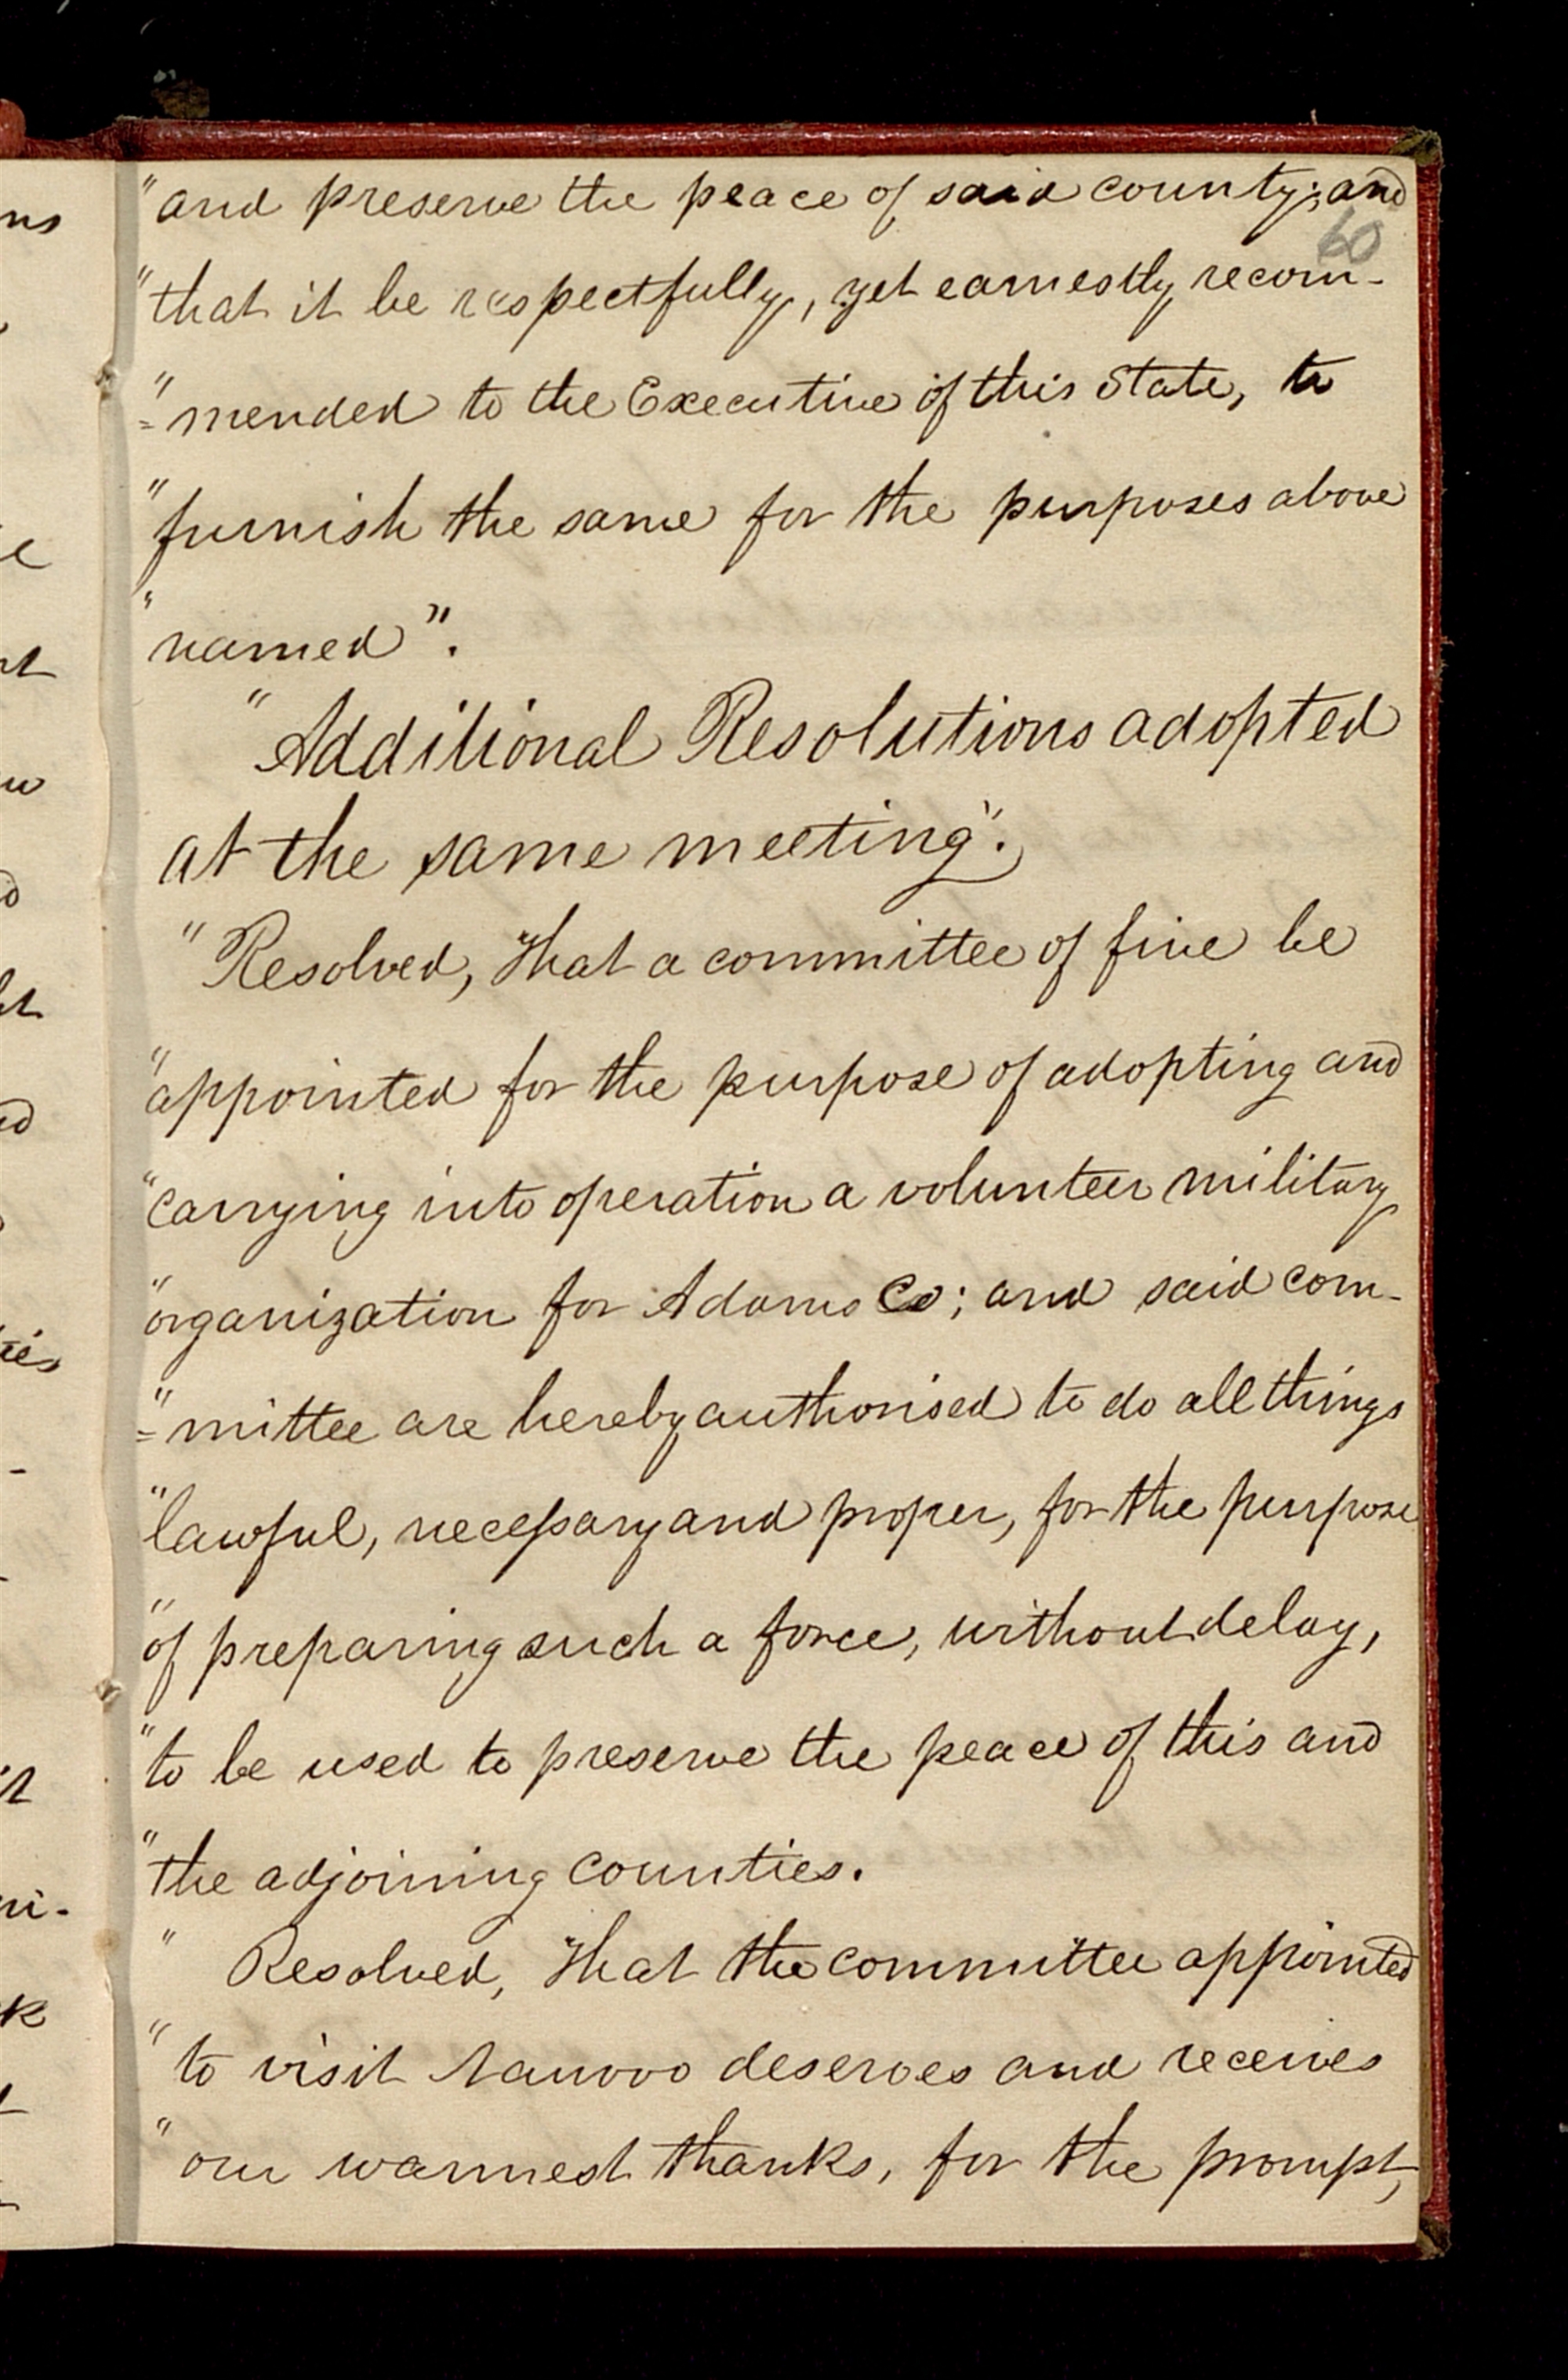 "and preserve the peace of said county; and
60
"that it be respectfully, yet earnestly recom-
"=mended to the Executive of this State, to
"furnish the same for the purposes above
"named".
"Additional Resolutions adopted
at the same meeting".
"Resolved, That a committee of five be
"appointed for the purpose of adopting and
"carrying into operation a volunteer military
"organization for Adams Co; and said com-
"=mittee are hereby authorised to do all things
"lawful, necessary and proper, for the purpose
"of preparing such a force, without delay,
"to be used to preserve the peace of this and
"the adjoining counties.
" Resolved, That the committee appointed
"to visit Nauvoo deserves and receives
"our warmest thanks, for the prompt,